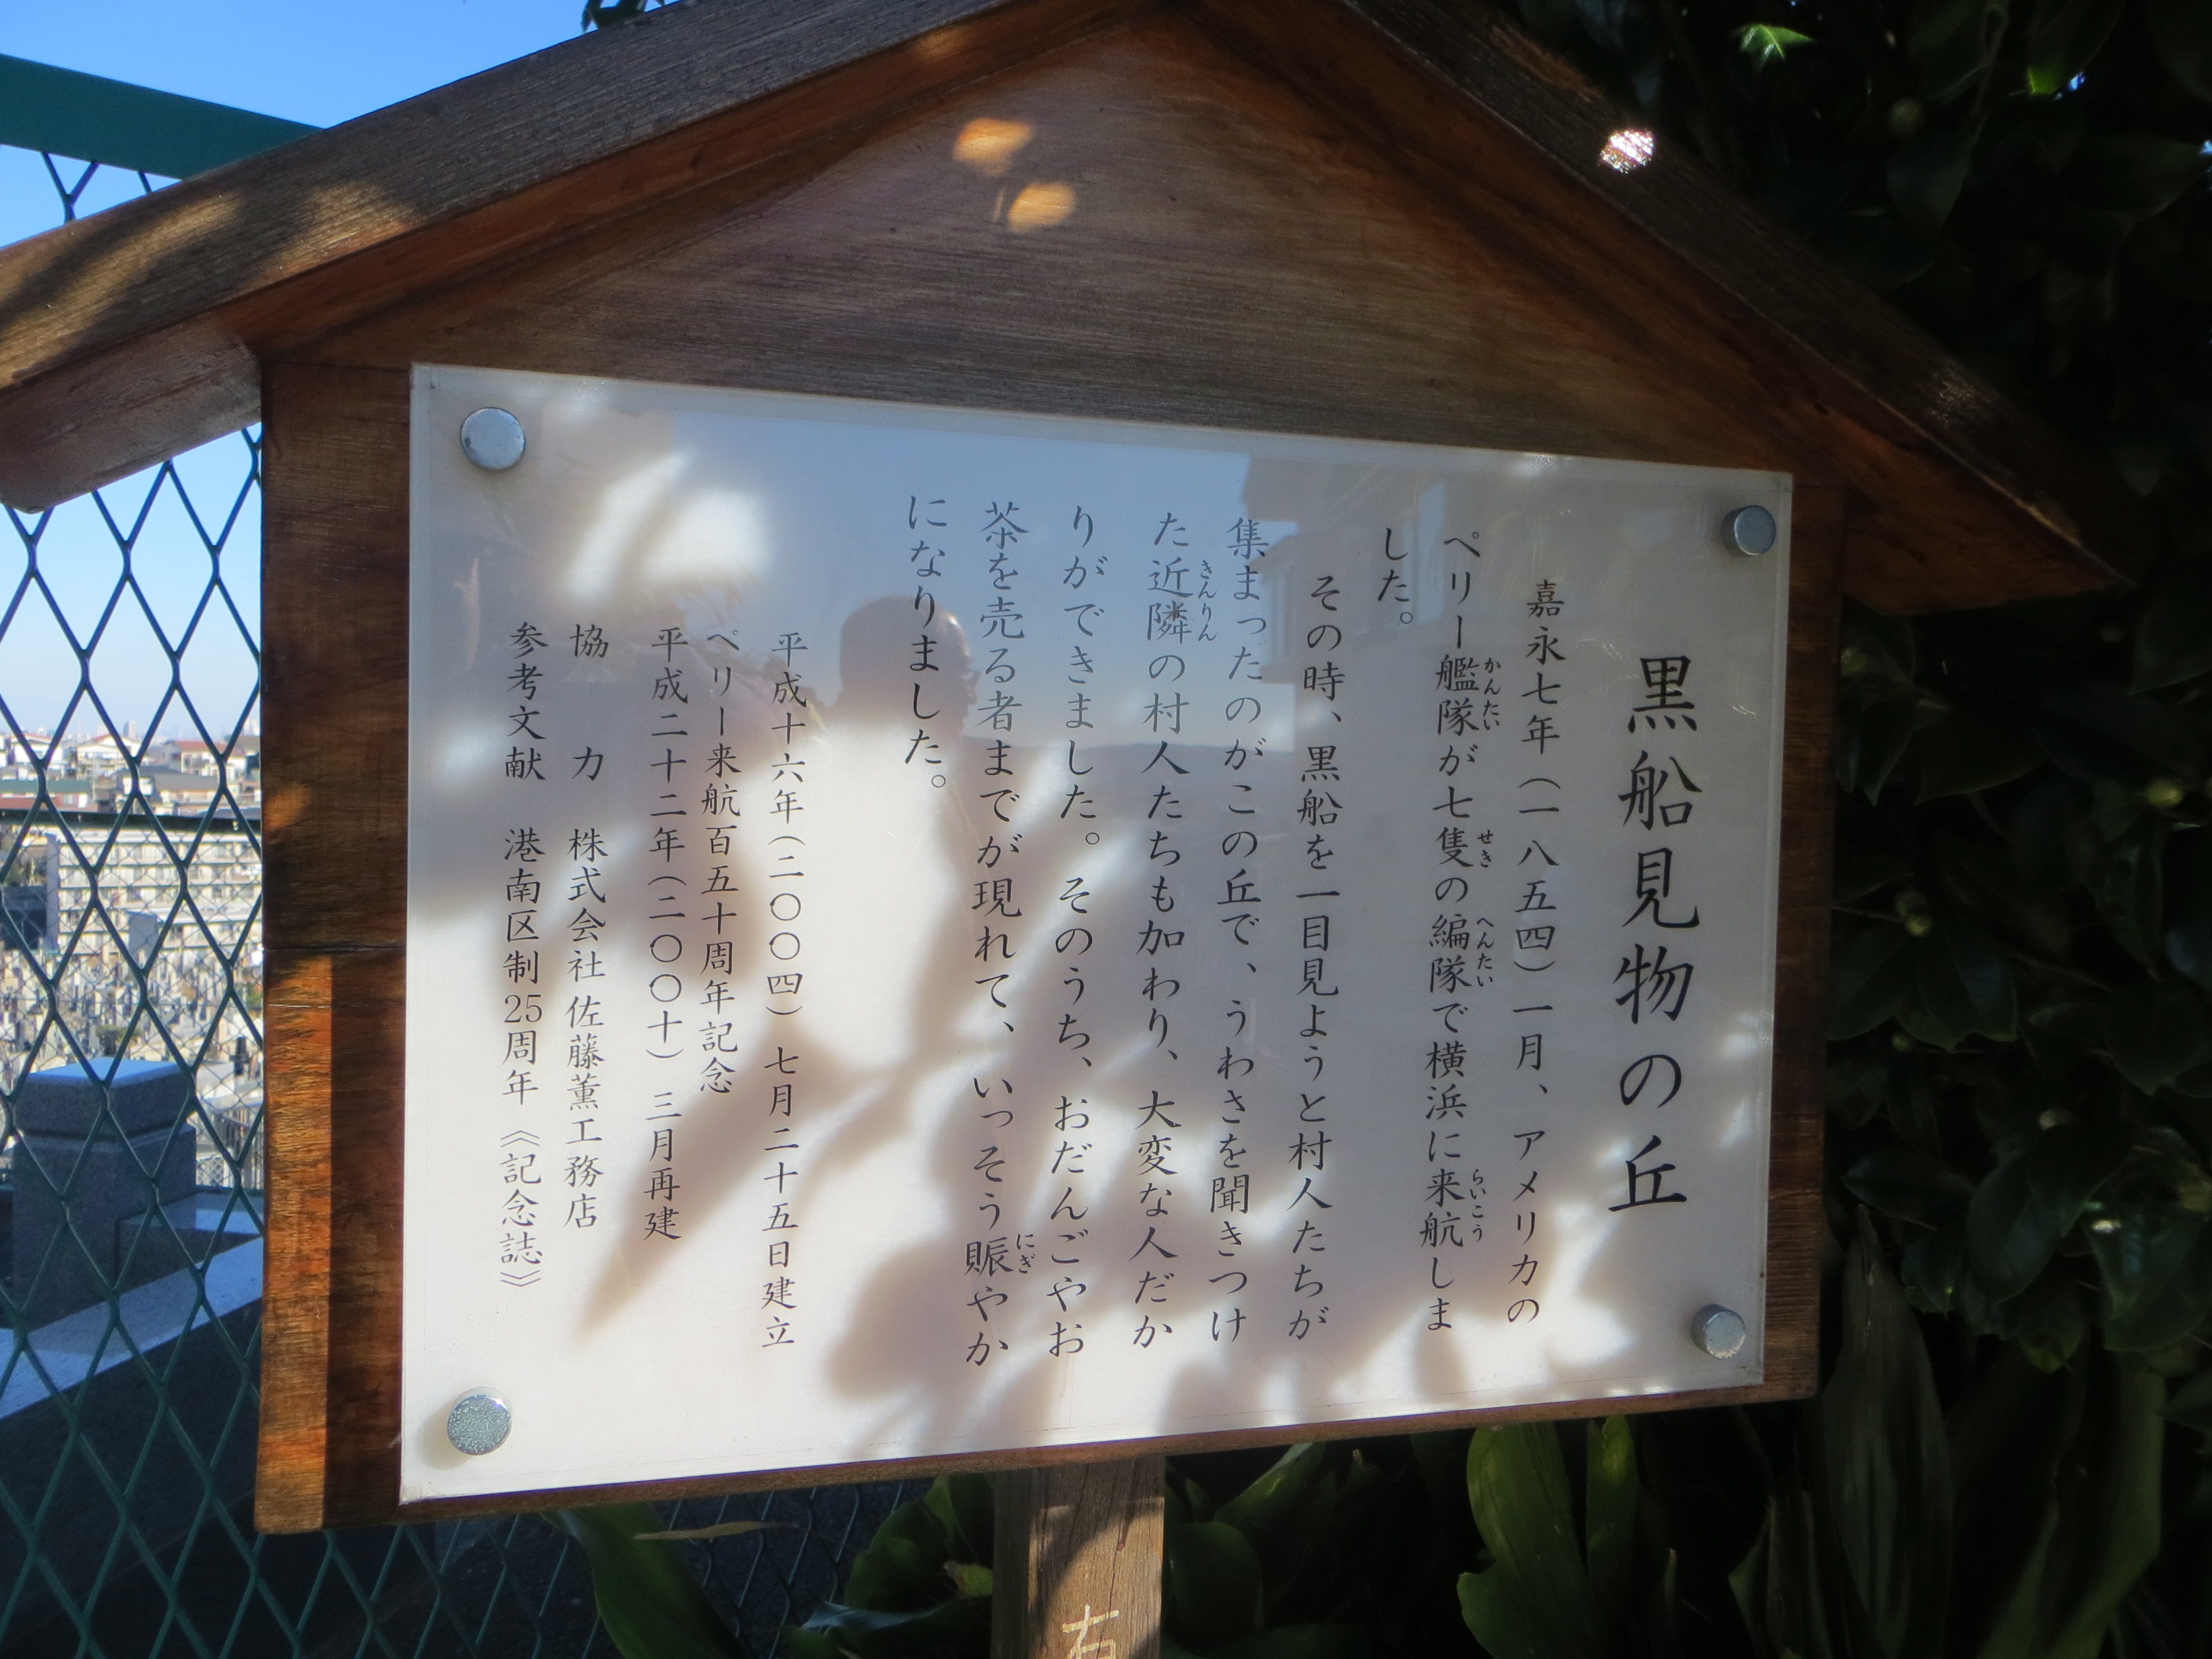 黒船見物の丘
嘉永七年（一八五四）一月、アメリカの
ペリー艦隊が七隻の編隊で横浜に来航しま
した。
その時、黒船を一目見ようと村人たちが
集まったのがこの丘で、うわさを聞きつけ
た近隣の村人たちも加わり、大変な人だか
りができました。そのうち、おだんごやお
茶を売る者までが現れて、いっそう賑やか
になりました。
平成十六年（二〇〇四）七月二十五日建立
ペリー来航百五十周年記念
平成二十二年（二〇〇十）三月再建
協　力　株式会社佐藤薫工務店
参考文献　港南区制25周年《記念誌》
右